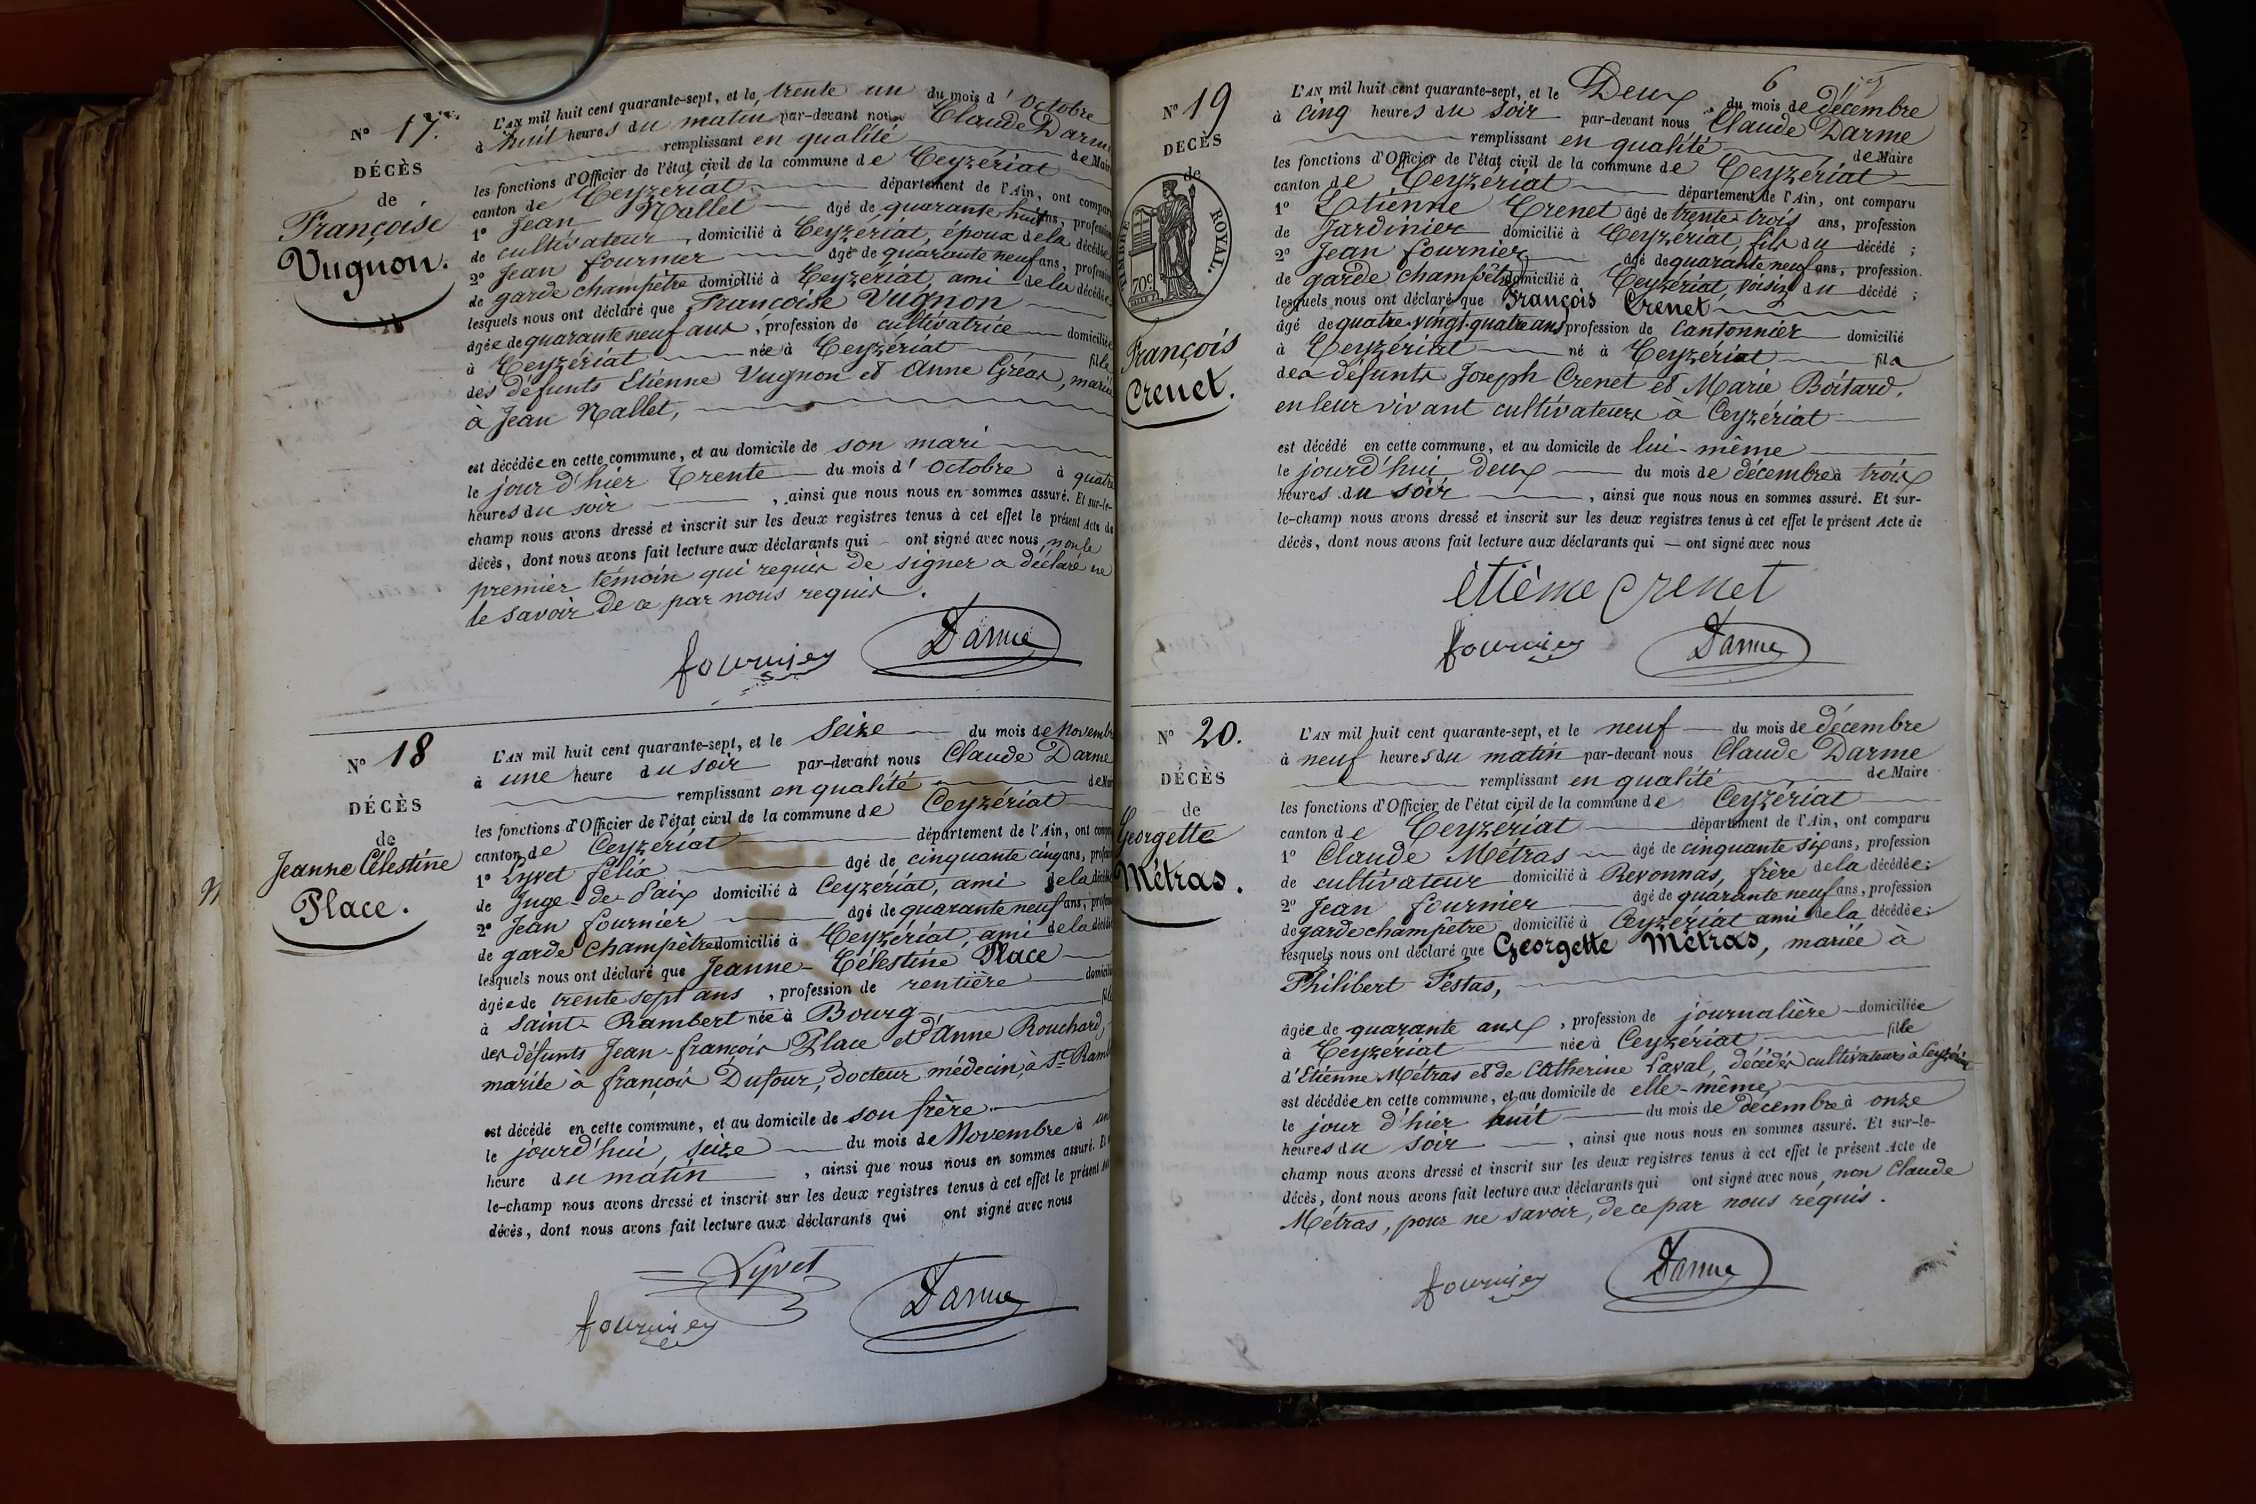 N° 17.
DÉCÈS
de
Françoise
Vugnon.
L'AN mil huit cent quarante-sept, et le trente un du mois d'Octobre
à huit heures du matin par-devant nous Claude Darme
remplissant en qualité de Maire
les fonctions d'Officier de l'état civil de la commune de Ceyzériat
canton de Ceyzériat département de l'Ain, ont comparu
1° Jean Nallet âgé de quarante huit ans, profession
de cultivateur, domicilié à Ceyzériat, époux de la décédée
2° Jean fournier âgé de quarante neuf ans, profession
de garde champêtre domicilié à Ceyzériat, ami de la décédée
lesquels nous ont déclaré que Françoise Vugnon
âgée de quarante neuf ans, profession de cultivatrice domiciliée
à Ceyzériat née à Ceyzériat fille
des défunts Etienne Vugnon et Anne Gréas, mariée
à Jean Nallet,
est décédée en cette commune, et au domicile de son mari
le jour d'hier Trente du mois d'Octobre à quatre
heures du soir, ainsi que nous nous en sommes assuré. Et sur-le-
champ nous avons dressé et inscrit sur les deux registres tenus à cet effet le présent Acte de
décès, dont nous avons fait lecture aux déclarants qui ont signé avec nous, non le
premier témoin qui requis de signer a déclaré ne
le savoir de ce par nous requis.
fournier Darme
N° 18
DÉCÈS
de
Jeanne Célestine
Place.
L'AN mil huit cent quarante-sept, et le Seize du mois de Novembre
à une heure du soir par-devant nous Claude Darme
remplissant en qualité de Maire
les fonctions d'Officier de l'état civil de la commune de Ceyzériat
canton de Ceyzériat département de l'Ain, ont comparu
1° Lyvet félix âgé de cinquante cinq ans, profession
de Juge-de-Paix domicilié à Ceyzériat, ami de la décédée
2° Jean fournier âgé de quarante neuf ans, profession
de garde champêtre domicilié à Ceyzériat, ami de la décédée
lesquels nous ont déclaré que Jeanne-Célestine Place
âgée de trente sept ans, profession de rentière domiciliée
à Saint-Rambert née à Bourg fille
des défunts Jean-françois Place et d'Anne Rouchard,
mariée à françois Dufour, docteur médecin, à St Ramb
est décédé en cette commune, et au domicile de son frère
le jourd'hui, seize du mois de Novembre à une
heure du matin, ainsi que nous nous en sommes assuré. Et
le-champ nous avons dressé et inscrit sur les deux registres tenus à cet effet le présent
décès, dont nous avons fait lecture aux déclarants qui ont signé avec nous
Lyvet
fournier Darme
6
N° 19
DÉCÈS
de
TIMBRE ROYAL.
70c
François
Crenet.
L'AN mil huit cent quarante-sept, et le Deux du mois de décembre
à cinq heures du soir par-devant nous Claude Darme
remplissant en qualité de Maire
les fonctions d'Officier de l'état civil de la commune de Ceyzériat
canton de Ceyzériat département de l'Ain, ont comparu
1° Etienne Crenet âgé de trente-trois ans, profession
de Jardinier domicilié à Ceyzériat, fils du décédé ;
2° Jean fournier âgé de quarante neuf ans, profession
de garde champêtre domicilié à Ceyzériat, voisin du décédé ;
lesquels nous ont déclaré que François Crenet
âgé de quatre-vingt-quatre ans profession de Cantonnier domicilié
à Ceyzériat né à Ceyzériat fils
des défunts Joseph Crenet et Marie Boitard,
en leur vivant cultivateurs à Ceyzériat
est décédé en cette commune, et au domicile de lui-même
le jourd'hui deux du mois de décembre à trois
heures du soir, ainsi que nous nous en sommes assuré. Et sur-
le-champ nous avons dressé et inscrit sur les deux registres tenus à cet effet le présent Acte de
décès, dont nous avons fait lecture aux déclarants qui — ont signé avec nous
étiènne crenet
fournier Darme
N° 20.
DÉCÈS
de
Georgette
Métras.
L'AN mil huit cent quarante-sept, et le neuf du mois de décembre
à neuf heures du matin par-devant nous Claude Darme
remplissant en qualité de Maire
les fonctions d'Officier de l'état civil de la commune de Ceyzériat
canton de Ceyzériat département de l'Ain, ont comparu
1° Claude Métras âgé de cinquante six ans, profession
de cultivateur domicilié à Revonnas, frère de la décédée ;
2° Jean fournier âgé de quarante neuf ans, profession
de garde champêtre domicilié à Ceyzériat ami de la décédée ;
lesquels nous ont déclaré que Georgette Métras, mariée à
Philibert Festas,
âgée de quarante ans, profession de journalière domiciliée
à Ceyzériat née à Ceyzériat fille
d'Etienne Métras et de Catherine Laval, décédés cultivateurs à Ceyzériat
est décédée en cette commune, et au domicile de elle-même
le jour d'hier huit du mois de décembre à onze
heures du soir, ainsi que nous nous en sommes assuré. Et sur-le-
champ nous avons dressé et inscrit sur les deux registres tenus à cet effet le présent Acte de
décès, dont nous avons fait lecture aux déclarants qui ont signé avec nous, non Claude
Métras, pour ne savoir, de ce par nous requis.
fournier Darme